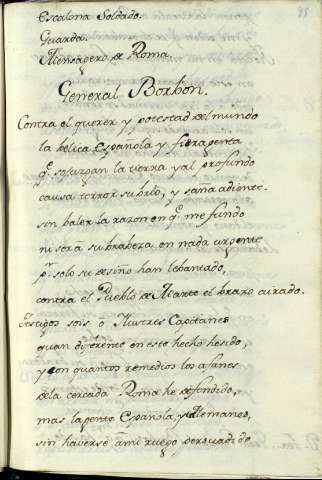 95
Escalona Soldado.
Guarda.
Mensagero de Roma.
General Borbon.
Contra el querer y potestad del mundo
la belica Española y fiera gente
q.e sojuzgan la tierra y al profundo
causa terror su brio, y saña adiente.
sin baler la razon en q.e me fundo
ni será su braveza en nada urgente
p.r solo su desino han lebantado,
contra el Pueblo de Marte el brazo airado.
Testigos sois ó Ilustres Capitanes
quan diferente en este hecho he sido,
y con quantos remedios los afanes
de la cercada Roma he defendido,
mas la gente Española, y Alemanes,
sin haverse á mi ruego persuadido